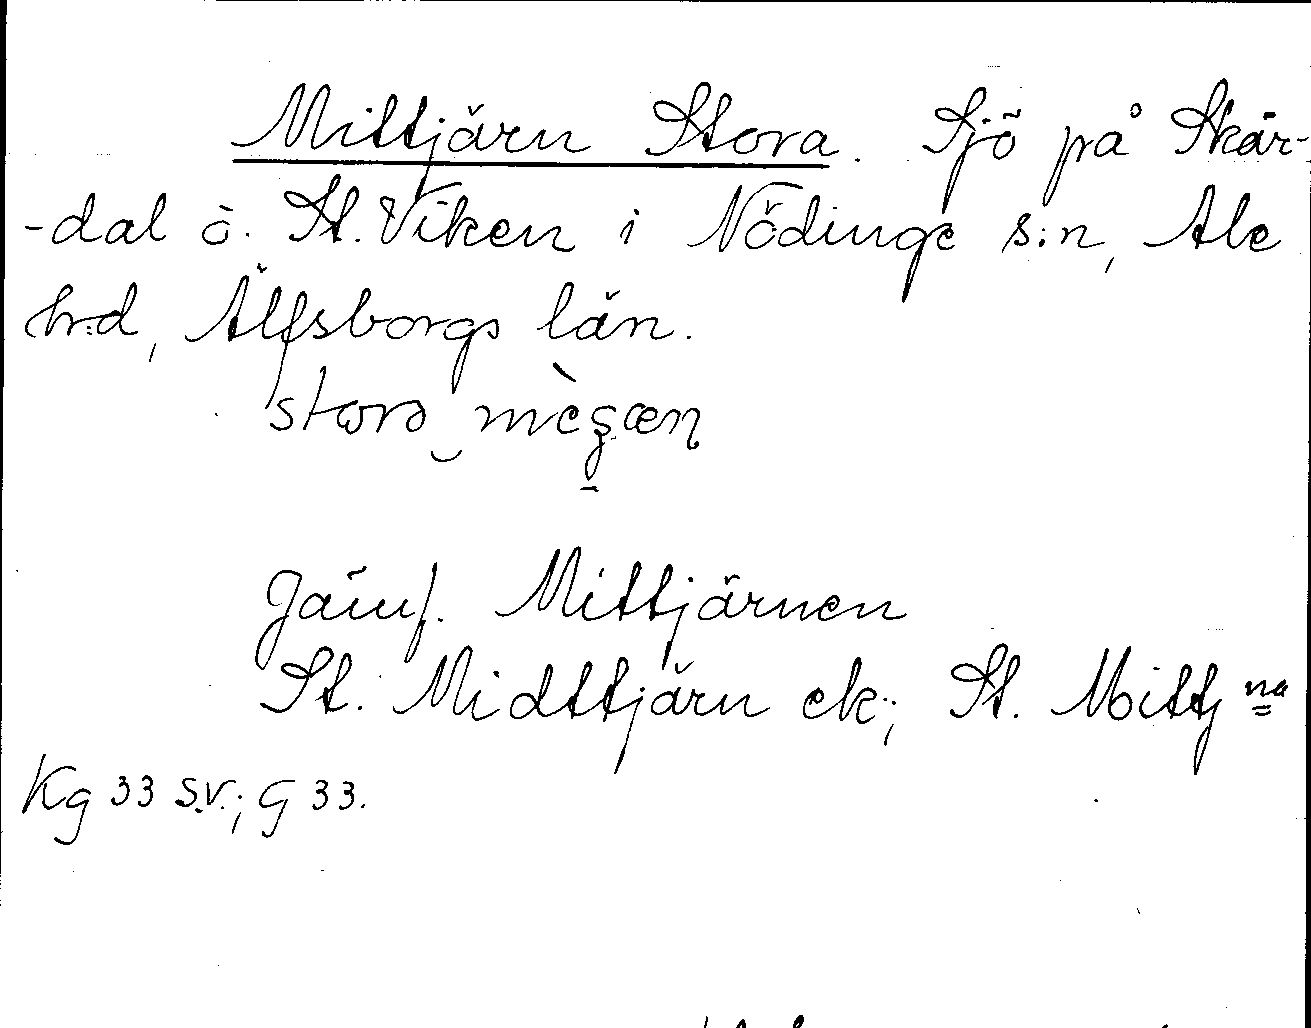 Mittjärn Stora. Sjö på Skår-
-dal ö. St. Viken i Nödinge s:n, Ale
hrd, Älfsborgs län.
Jämf. Mittjärnen
St. Midttjärn ek; St. Mittj na
Kg 33 S.V.; G 33.